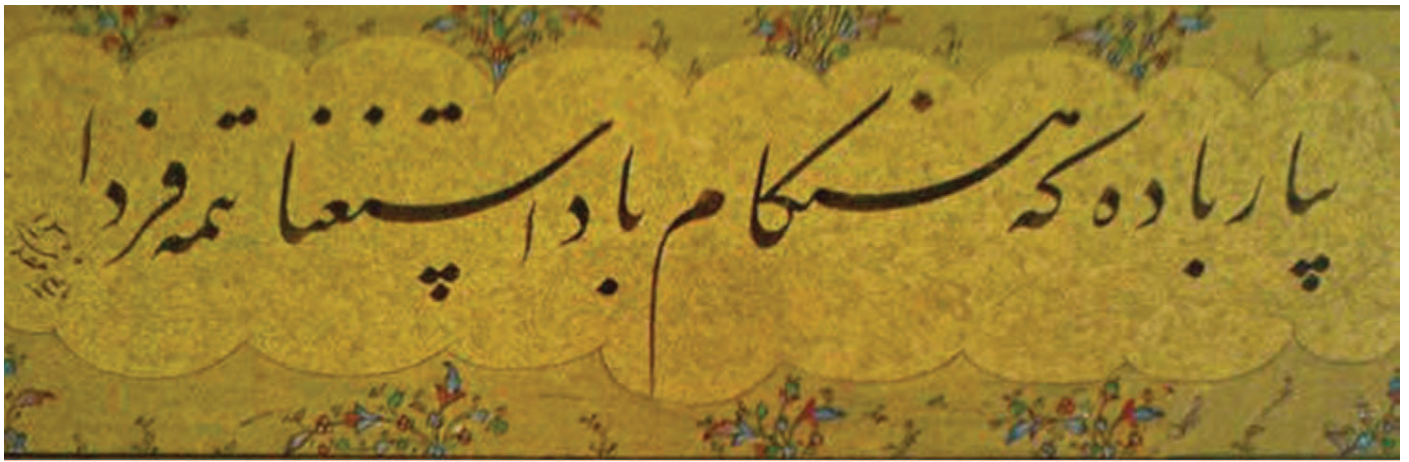 بیار باده که هنگام باد استغنا تمه فردا